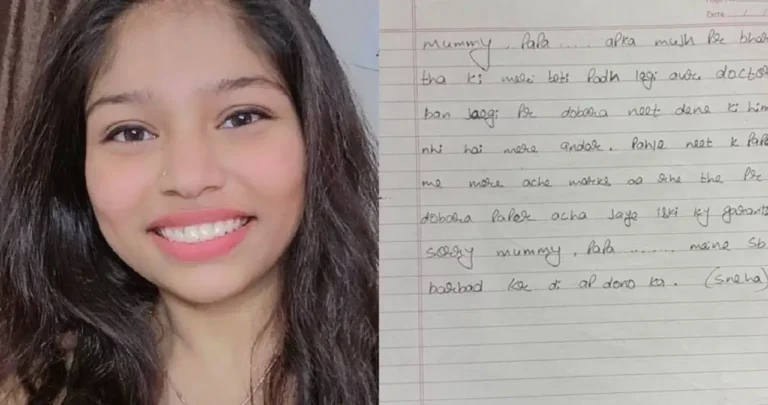 Date / /
mummy, Papa ..... apka mujh Pr
tha ki meri beti Padh legi aur doctor
ban jaegi Pr dobara neet dene ki him
nhi hai mere andar. Pahle neet k Pap
me mere ache marks aa rhe the Pr
dobara Paper acha jaye iski ky garant
sorry mummy, Papa ....... maine sb
barbad kr di ap dono ka. (sneha)